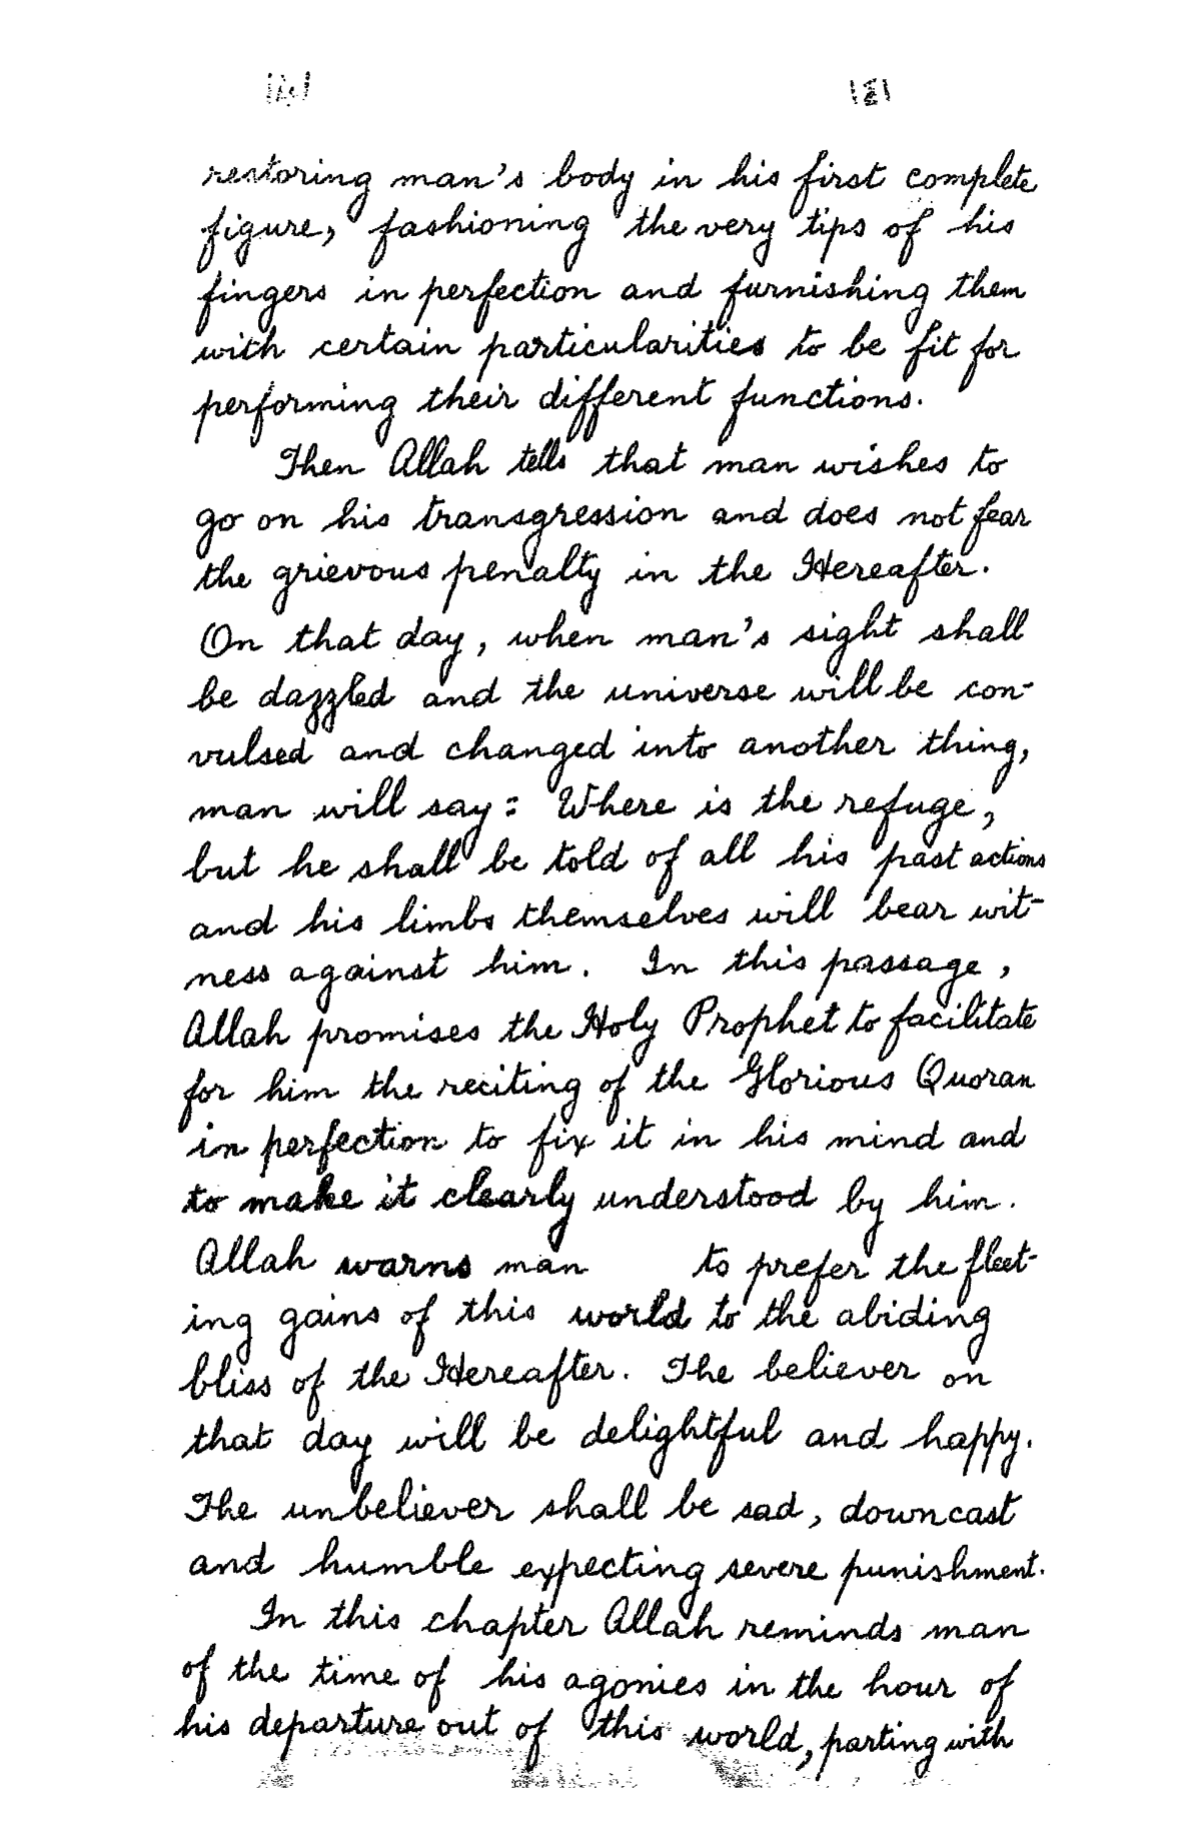 restoring man's body in his first complete
figure, fashioning the very tips of his
fingers in perfection and furnishing them
with certain particularities to be fit for
performing their different functions.
Then Allah tells that man wishes to
go on his transgression and does not fear
the grievous penalty in the Hereafter.
On that day, when man's sight shall
be dazzled and the universe will be con-
vulsed and changed into another thing,
man will say: Where is the refuge,
but he shall be told of all his past actions
and his limbs themselves will bear wit-
ness against him. In this passage,
Allah promises the Holy Prophet to facilitate
for him the reciting of the Glorious Quoran
in perfection to fix it in his mind and
to make it clearly understood by him.
Allah warns man to prefer the fleet-
ing gains of this world to the abiding
bliss of the Hereafter. The believer on
that day will be delightful and happy.
The unbeliever shall be sad, downcast
and humble expecting severe punishment.
In this chapter Allah reminds man
of the time of his agonies in the hour of
his departure out of this world, parting with